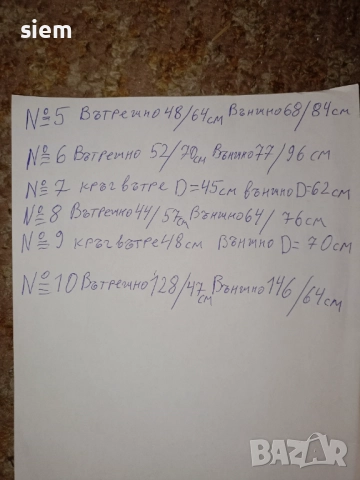 siem
№5 Вътрешно 48/64см Външно 68/84см
№6 Вътрешно 52/70см Външно 77/96 см
№7 кръг вътре D=45см външно D=62см
№8 Вътрешно 44/57см Външно 64/76см
№9 кръг вътре 48см Външно D=70см
№10 Вътрешно 128/47см Външно 146/64см
BAZAR